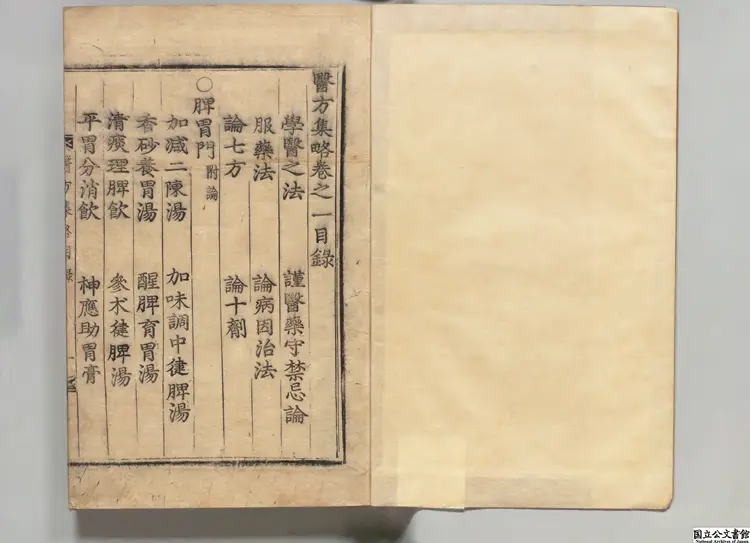 醫方集略卷之一目錄
學醫之法 謹醫藥守禁忌論
服藥法 論病因治法
論七方 論十劑
○脾胃門 附論
加減二陳湯 加味調中健脾湯
香砂養胃湯 醒脾育胃湯
清痰理脾飲 參朮健脾湯
平胃分消飲 神應助胃膏
醫方集略目錄 一
国立公文書館
National Archives of Japan